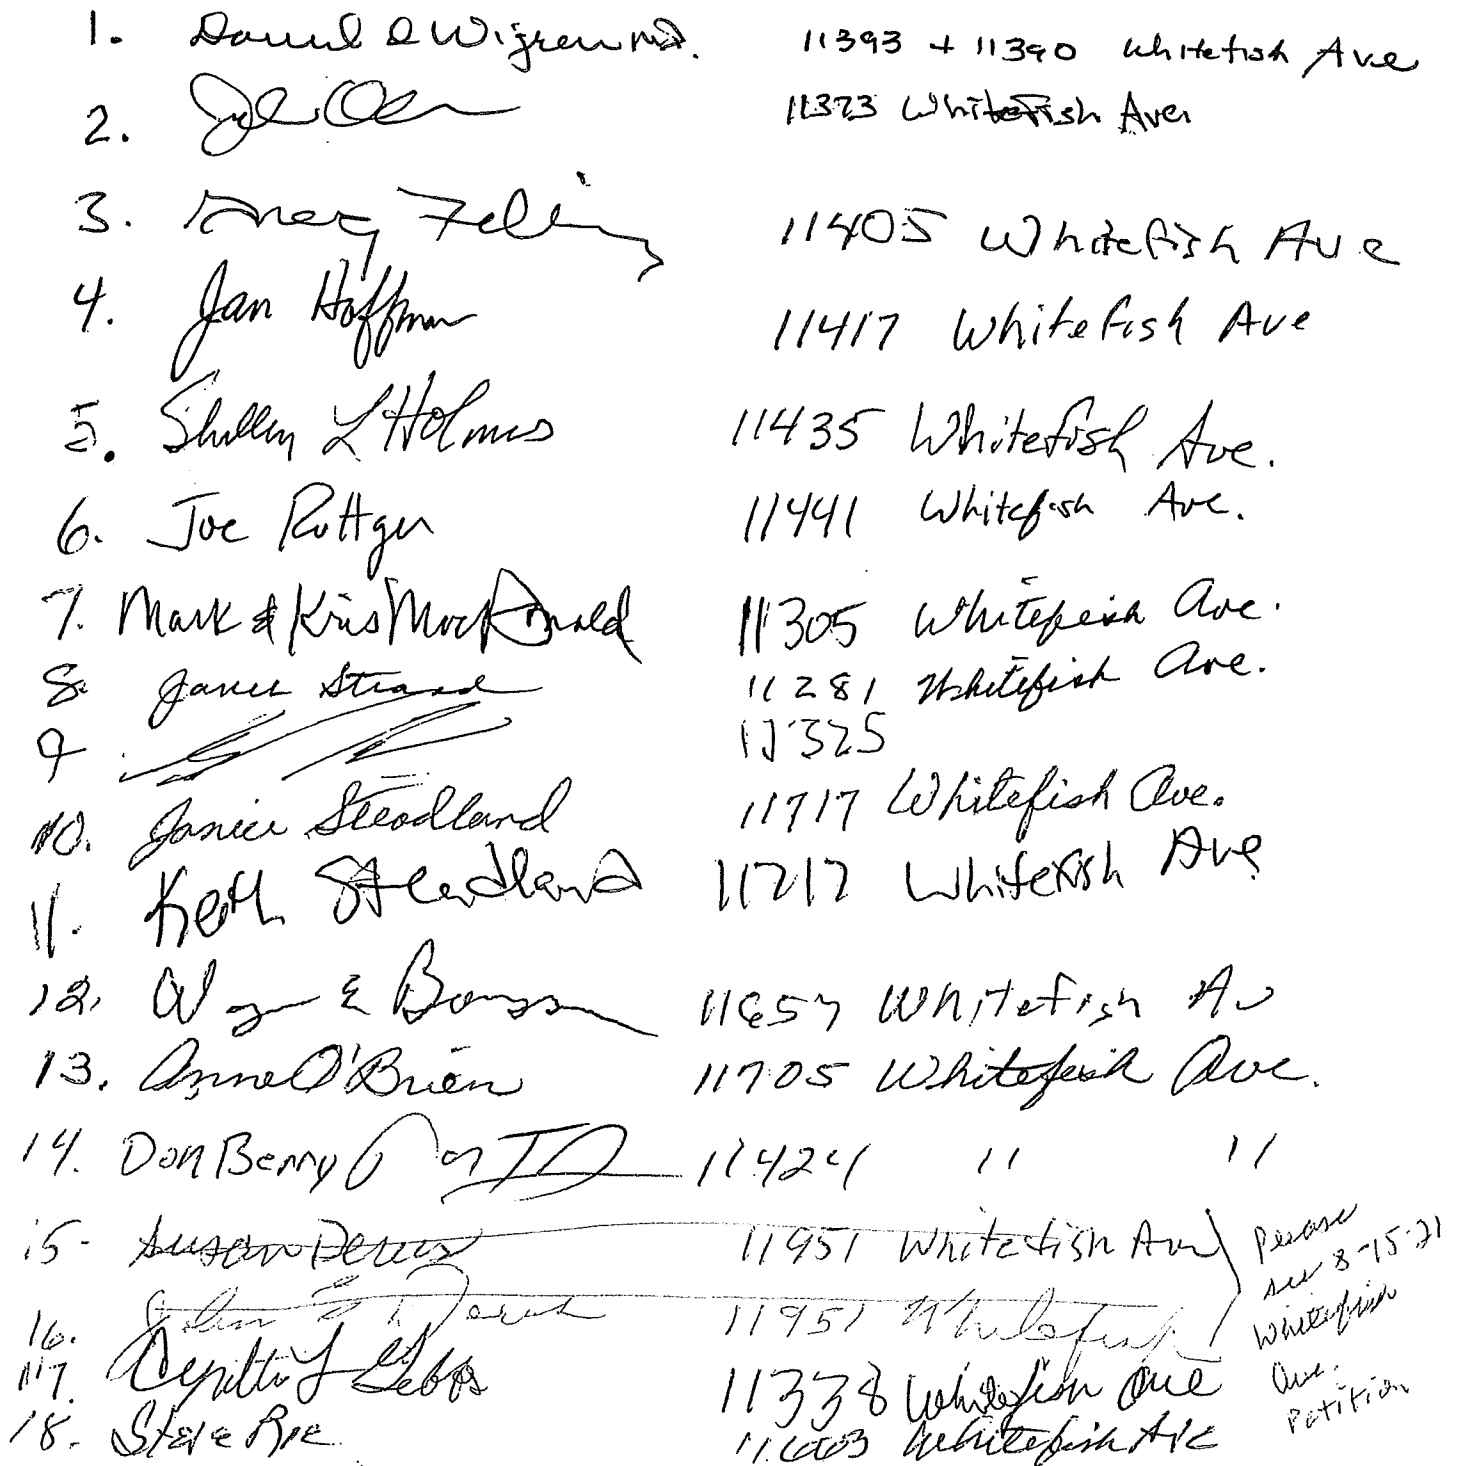 1. Daniel D Wigren md. 11393 + 11390 Whitefish Ave
2. 11323 Whitefish Ave
3. Greg 11405 Whitefish Ave
4. Jan Hoffman 11417 Whitefish Ave
5. Shelley L Holmes 11435 Whitefish Ave.
6. Joe Rottger 11441 Whitefish Ave.
7. Mark & Kris MacDonald 11305 Whitefish Ave.
8. Janet Strand 11281 Whitefish Ave.
9 11325
10. Janice Steadland 11717 Whitefish Ave.
11. Keith Steadland 11717 Whitefish Ave
12. E 11657 Whitefish Av
13. Anne O'Brien 11705 Whitefish Ave.
14. Don Berry 11424 " "
15. Susan 11951 Whitefish Ave
16. John 11951 Whitefish
17. L Gebbs 11338 Whitefish Ave
18. Steve 11603 Whitefish Ave
Please
see 8-15-21
Whitefish
Ave.
Petition